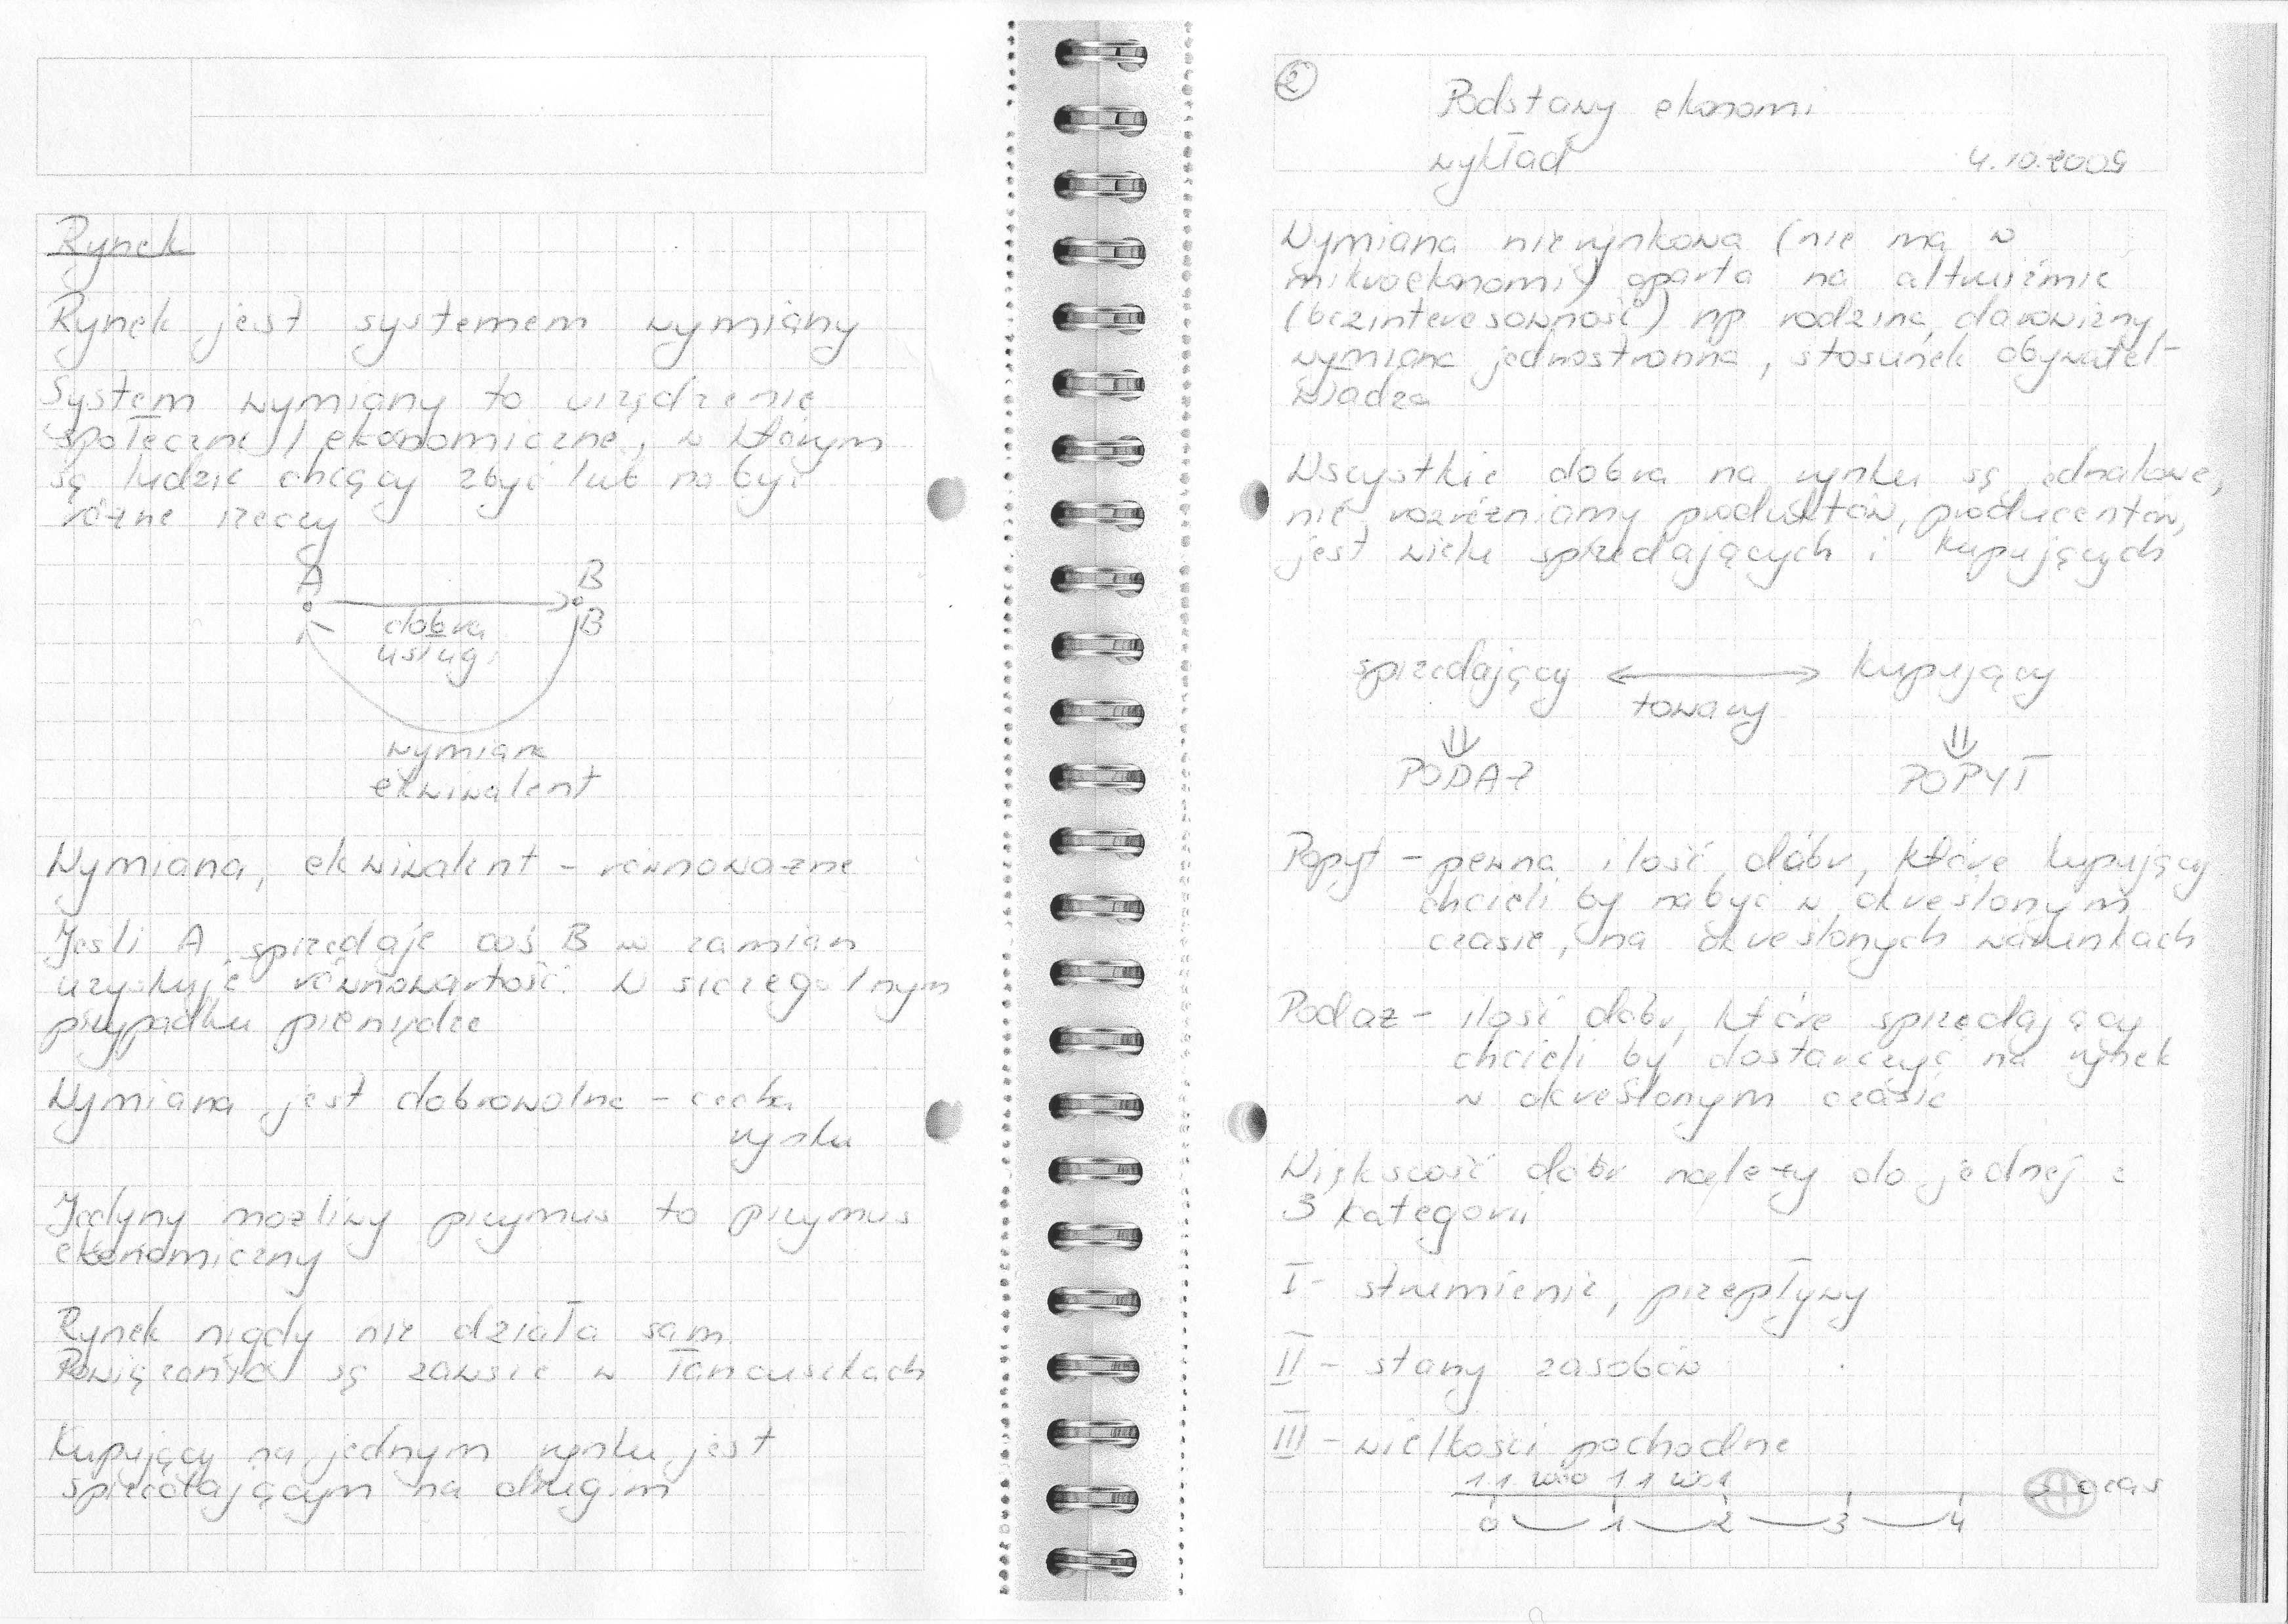 Rynek
Rynek jest systemem wymiany
System wymiany to urządzenie
społeczne / ekonomiczne, w którym
są ludzie chcący zbyć lub nabyć
różne rzeczy
A
B
B
dobra
usługi
wymiana
ekwiwalent
Wymiana, ekwiwalent – równoważne
Jeśli A sprzedaje coś B w zamian
uzyskuje równowartość. W szczególnym
przypadku pieniądze
Wymiana jest dobrowolna – cecha
rynku
Jedyny możliwy przymus to przymus
ekonomiczny
Rynek nigdy nie działa sam.
Powiązania są zawsze w łańcuszkach
Kupujący na jednym rynku jest
sprzedającym na drugim
2
Podstawy ekonomi
wykład 4.10.2009
Wymiana nierynkowa (nie ma w
mikroekonomi) oparta na altruiźmie
(bezinteresowność) np rodzina, darowizny,
wymiana jednostronna, stosunek obywatel-
władza
Wszystkie dobra na rynku są jednakowe,
nie rozróżniamy produktów, producentów,
jest wielu sprzedających i kupujących
sprzedający ⟷ kupujący
towary
⇓ ⇓
PODAŻ POPYT
Popyt – pewna ilość dóbr, które kupujący
chcieli by nabyć w określonym
czasie, na określonych warunkach
Podaż – ilość dóbr, które sprzedający
chcieli by dostarczyć na rynek
w określonym czasie
Większość dóbr należy do jednej z
3 kategorii
I – strumienie, przepływy
II – stany zasobów
III – wielkości pochodne
1.1 1.1 czas
0 1 2 3 4